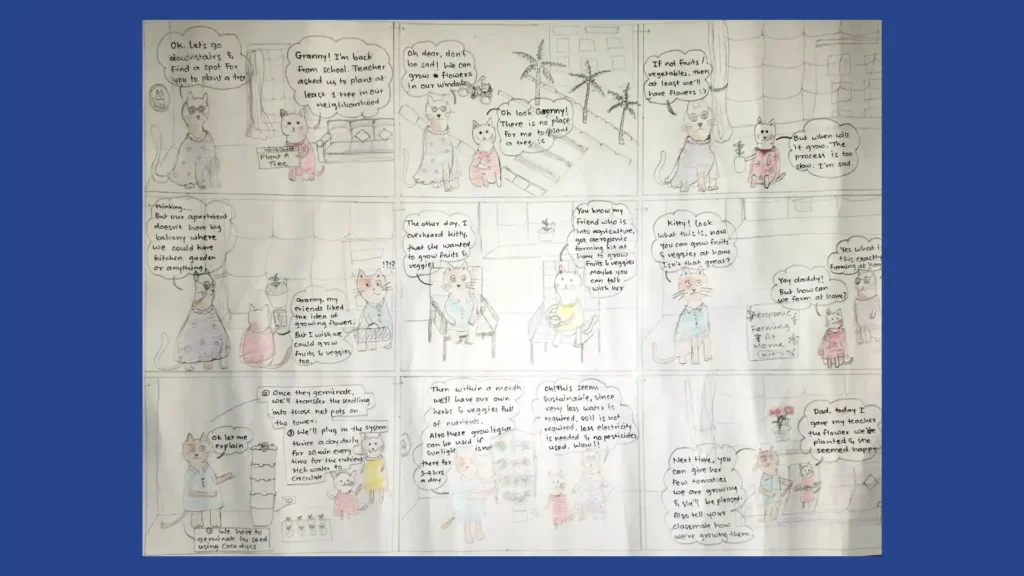 Ok. Let's go
downstairs &
find a spot for
you to plant a tree
Granny! I'm back
from school. Teacher
asked us to plant at
least 1 tree in our
neighbourhood
Plant A
Tree
Oh dear, don't
be sad! We can
grow flowers
in our window
Oh look Granny!
There is no place
for me to plant
a tree :(
If not fruits/
vegetables, then
at least we'll
have flowers :)
But when will
it grow. The
process is too
slow. I'm sad.
thinking....
But our apartment
doesn't have big
balcony where
we could have
kitchen garden
or anything.
Granny, my
friends liked
the idea of
growing flowers.
But I wish we
could grow
fruits & veggies
too.
!?!?
The other day, I
overheard kitty,
that she wanted
to grow fruits &
veggies
You know my
friend who is
into agriculture,
got aeroponic
farming kit at
home to grow
fruits & veggies
Maybe you
can talk
with her
Kitty! look
what this is, now
you can grow fruits
& veggies at home
Isn't that great?
Yay daddy!
But how can
we farm at home?
Yes what i
this exactly
farming at home
Aeroponic
Farming
At
Home
Kit
Ok let me
explain
① We have to
germinate the seed
using Coco discs
② Once they germinate,
we'll transfer the seedling
into those net pots on
the tower.
③ We'll plug in the system
thrice a day daily
for 20 min every
time for the nutrient
rich water to
circulate
Then within a month
we'll have our own
herbs & veggies full
of nutrients.
Also these grow lights
can be used if
sunlight is not
there for
3-4 hrs
a day
Oh! This seems
sustainable, since
very less water is
required, soil is not
required, less electricity
is needed & no pesticides
used. Wow!!
Dad, today I
gave my teacher
the flower we've
planted & she
seemed happy
Next time, you
can give her
few tomatoes
we are growing
& she'll be pleased.
Also tell your
classmate how
we're growing them.